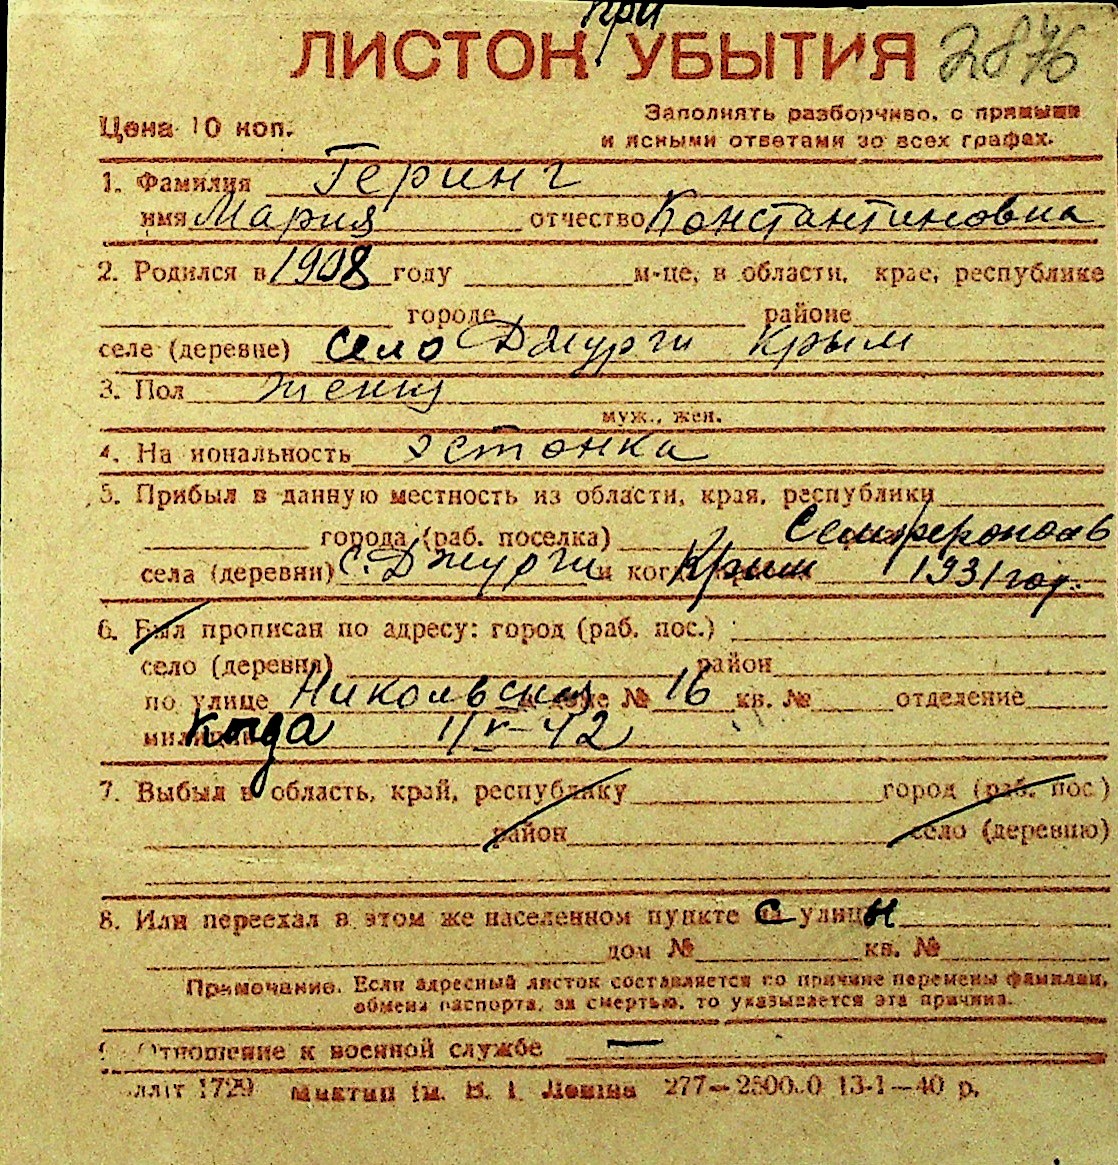 при
ЛИСТОК УБЫТИЯ 2876
Цена 10 коп. Заполнять разборчиво, с прямыми
и ясными ответами во всех графах.
1. Фамилия Геринг
имя Мария отчество Константиновна
2. Родился в 1908 году м-це, в области, крае, республике
городе районе
селе (деревне) село Джурги Крым
3. Пол женщ
муж., жен.
4. На иональность эстонка
5. Прибыл в данную местность из области, края, республики
города (раб. поселка) Семферополь
села (деревни) с. Джурги и Крым 1931 год.
6. Был прописан по адресу: город (раб. пос.)
село (деревня) район
по улице Никольская доме № 16 кв. № отделение
когда 1/V-42
7. Выбыл в область, край, республику город (раб. пос.)
район село (деревню)
8. Или переехал в этом же населенном пункте с улицы
дом № кв. №
Примечание. Если адресный листок составляется по причине перемены фамилии,
обмена паспорта, за смертью, то указывается эта причина.
Отношение к военной службе —
1729 277— 13-1—40 р.